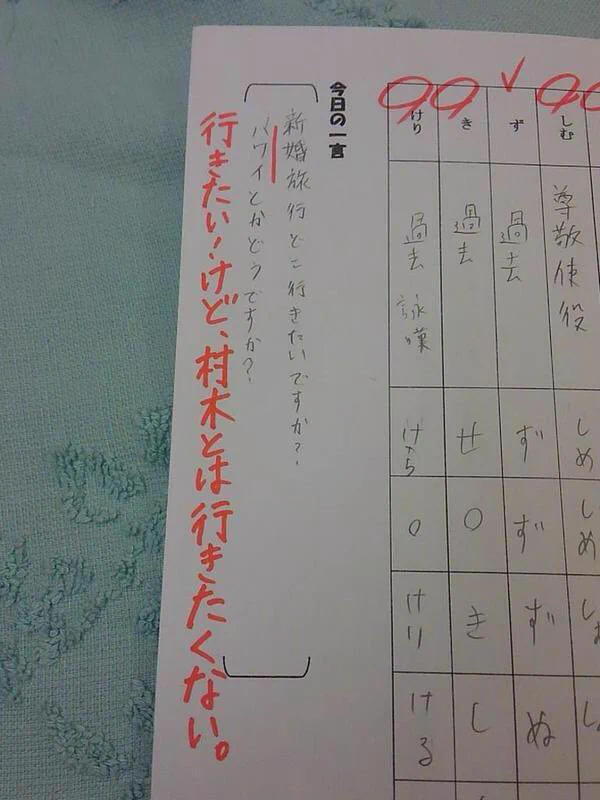 しむ
尊敬使役
しめ
ず
過去
ず
ず
ず
ぬ
き
過去
せ
○
き
し
けり
過去 詠嘆
けら
○
けり
ける
今日の一言
新婚旅行どこ行きたいですか？
ハワイとかどうですか？
行きたい！けど、村木とは行きたくない。